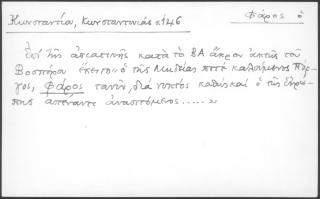 Κωνσταντίου, Κωνσταντινιάς σ. 146
Φάρος ὁ
Ἐπὶ τῆς ἀσιατικῆς κατὰ τὸ ΒΑ ἄκρον ἀκτῆς τοῦ
Βοσπόρου ἔκειτο ὁ τῆς Μηδείας ποτὲ καλούμενος Πύρ-
γος, Φάρος τανῦν, διὰ νυκτὸς καθὼς καὶ ὁ τῆς Εὐρώ-
πης ἀπέναντι ἀναπτόμενος.....»